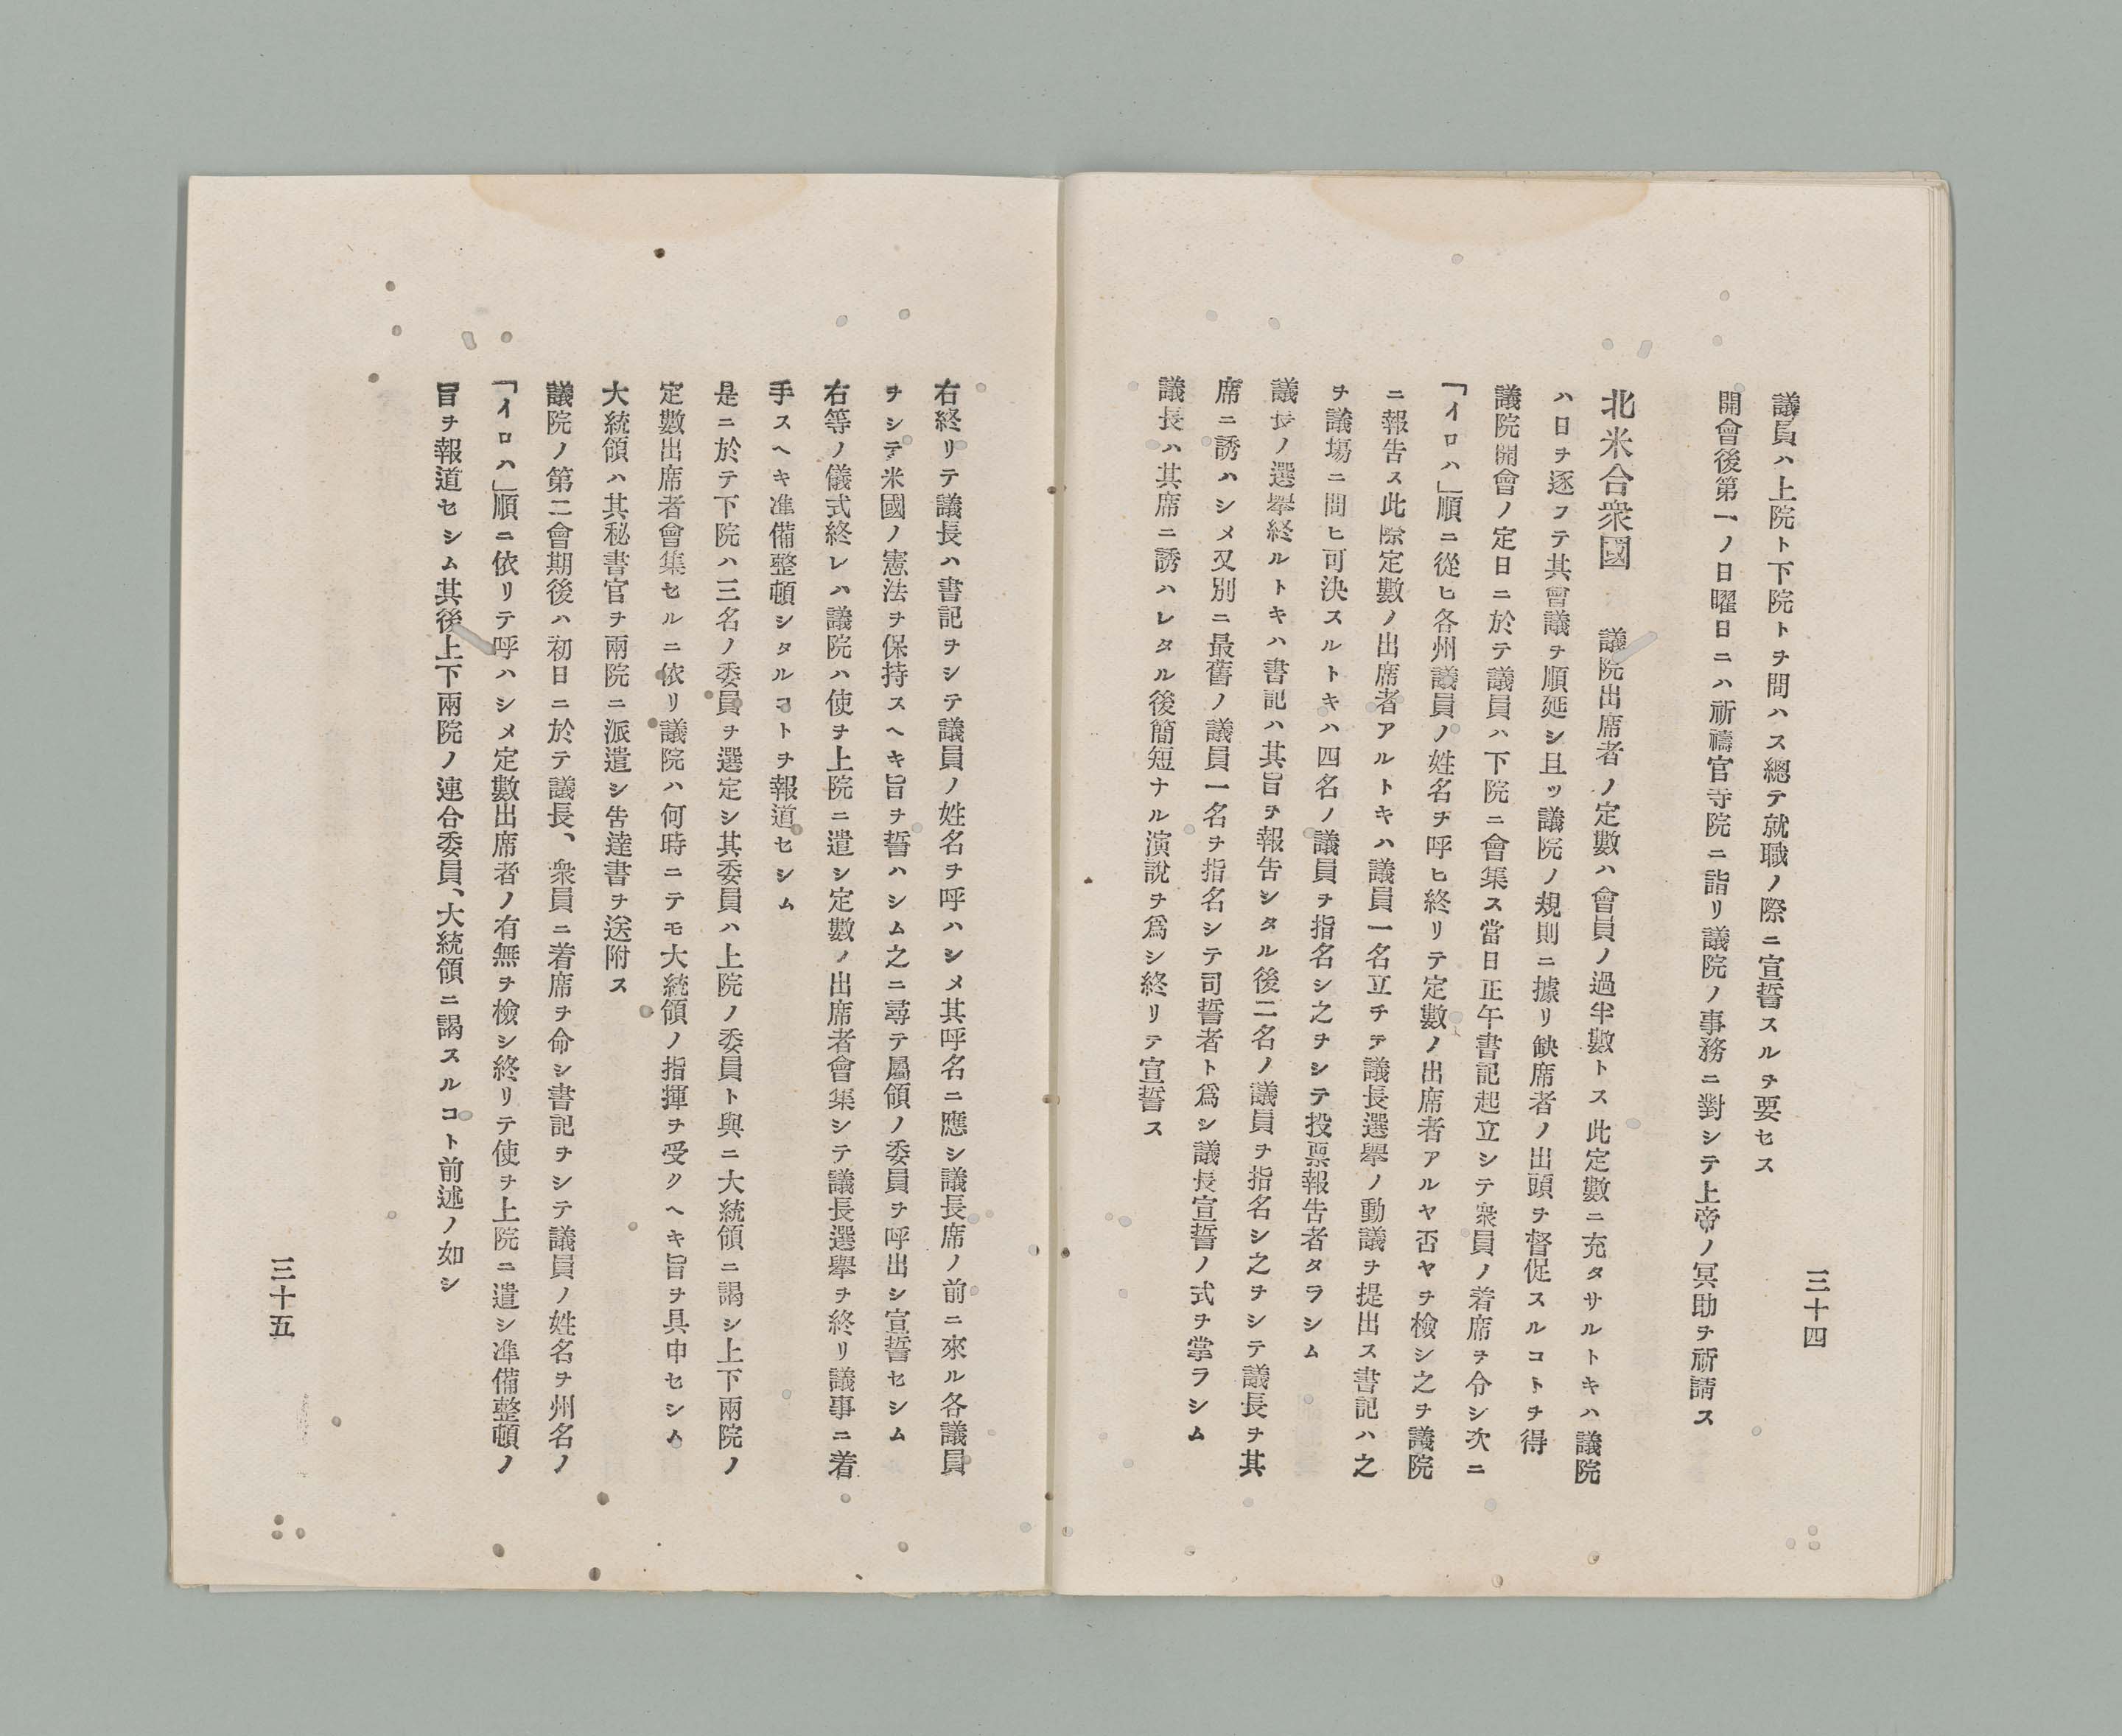 議員ハ上院ト下院トヲ問ハス總テ就職ノ際ニ宣誓スルヲ要セス
開會後第一ノ日曜日ニハ祈禱官寺院ニ詣リ議院ノ事務ニ對シテ上帝ノ冥助ヲ祈請ス
北米合衆國　議院出席者ノ定數ハ會員ノ過半數トス此定數ニ充タサルトキハ議院
ハ日ヲ逐フテ其會議ヲ順延シ且ッ議院ノ規則ニ據リ缺席者ノ出頭ヲ督促スルコトヲ得
議院開會ノ定日ニ於テ議員ハ下院ニ會集ス當日正午書記起立シテ衆員ノ着席ヲ令シ次ニ
「イロハ」順ニ從ヒ各州議員ノ姓名ヲ呼ヒ終リテ定數ノ出席者アルヤ否ヤヲ檢シ之ヲ議院
ニ報告ス此際定數ノ出席者アルトキハ議員一名立チテ議長選擧ノ動議ヲ提出ス書記ハ之
ヲ議場ニ問ヒ可決スルトキハ四名ノ議員ヲ指名シ之ヲシテ投票報告者タラシム
議長ノ選擧終ルトキハ書記ハ其旨ヲ報告シタル後二名ノ議員ヲ指名シ之ヲシテ議長ヲ其
席ニ誘ハシメ又別ニ最舊ノ議員一名ヲ指名シテ司誓者ト爲シ議長宣誓ノ式ヲ掌ラシム
議長ハ其席ニ誘ハレタル後簡短ナル演說ヲ爲シ終リテ宣誓ス
三十四
右終リテ議長ハ書記ヲシテ議員ノ姓名ヲ呼ハシメ其呼名ニ應シ議長席ノ前ニ來ル各議員
ヲシテ米國ノ憲法ヲ保持スヘキ旨ヲ誓ハシム之ニ尋テ屬領ノ委員ヲ呼出シ宣誓セシム
右等ノ儀式終レハ議院ハ使ヲ上院ニ遣シ定數ノ出席者會集シテ議長選擧ヲ終リ議事ニ着
手スヘキ準備整頓シタルコトヲ報道セシム
是ニ於テ下院ハ三名ノ委員ヲ選定シ其委員ハ上院ノ委員ト與ニ大統領ニ謁シ上下兩院ノ
定數出席者會集セルニ依リ議院ハ何時ニテモ大統領ノ指揮ヲ受クヘキ旨ヲ具申セシム
大統領ハ其秘書官ヲ兩院ニ派遣シ告達書ヲ送附ス
議院ノ第二會期後ハ初日ニ於テ議長、衆員ニ着席ヲ命シ書記ヲシテ議員ノ姓名ヲ州名ノ
「イロハ」順ニ依リテ呼ハシメ定數出席者ノ有無ヲ檢シ終リテ使ヲ上院ニ遣シ準備整頓ノ
旨ヲ報道セシム其後上下兩院ノ連合委員、大統領ニ謁スルコト前述ノ如シ
三十五